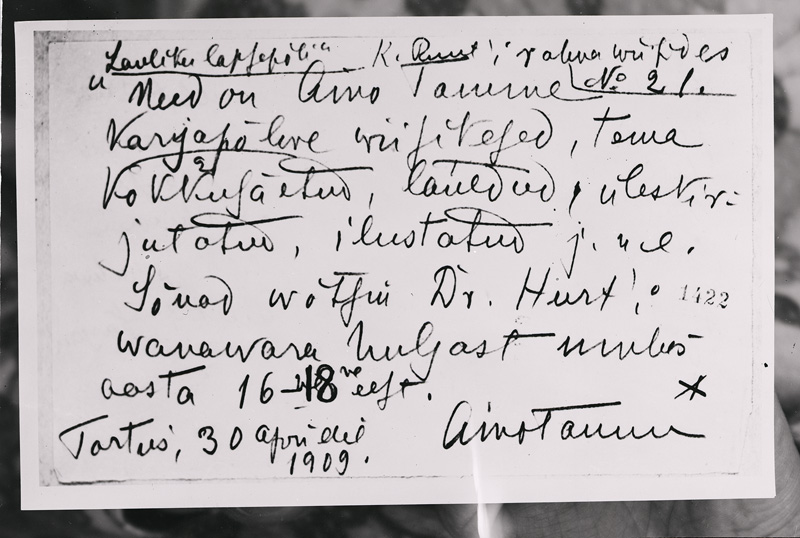 "Lauliku lapsepõli" K. Ruut'i rahva wiisides
"Need on Aino Tamme No 21.
Karjapõlwe wiisikesed, tema
kokkusäetud, lauldud, üleskir-
jutatud, ilustatud j. n. e.
Sõnad wõtsin Dr. Hurt'i
1422
wanawara hulgast umbes
aasta 16-18 eest.
Tartus, 30 aprillil AinoTamm
1909.